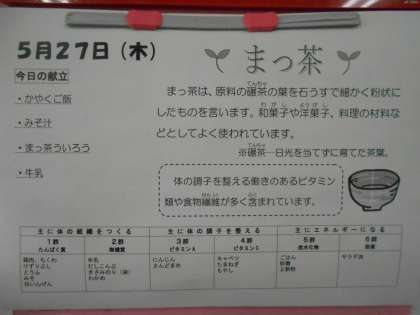 5月27日（木）
今日の献立
・かやくご飯
・みそ汁
・まっ茶ういろう
・牛乳
まっ茶
まっ茶は、原料の碾茶の葉を石うすで細かく粉状に
したものを言います。和菓子や洋菓子、料理の材料な
どとしてよく使われています。
※碾茶…日光を当てずに育てた茶葉。
体の調子を整える働きのあるビタミン
類や食物繊維が多く含まれています。
主に体の組織をつくる
主に体の調子を整える
主にエネルギーになる
1群 たんぱく質
2群 無機質
3群 ビタミンA
4群 ビタミンC
5群 炭水化物
6群 脂質
鶏肉、ちくわ
けずりぶし
とうふ
みそ
白いんげん
牛乳
だしこんぶ
きざみのり（袋）
わかめ
にんじん
さんどまめ
キャベツ
たまねぎ
もやし
ごはん
砂糖
上新粉
サラダ油